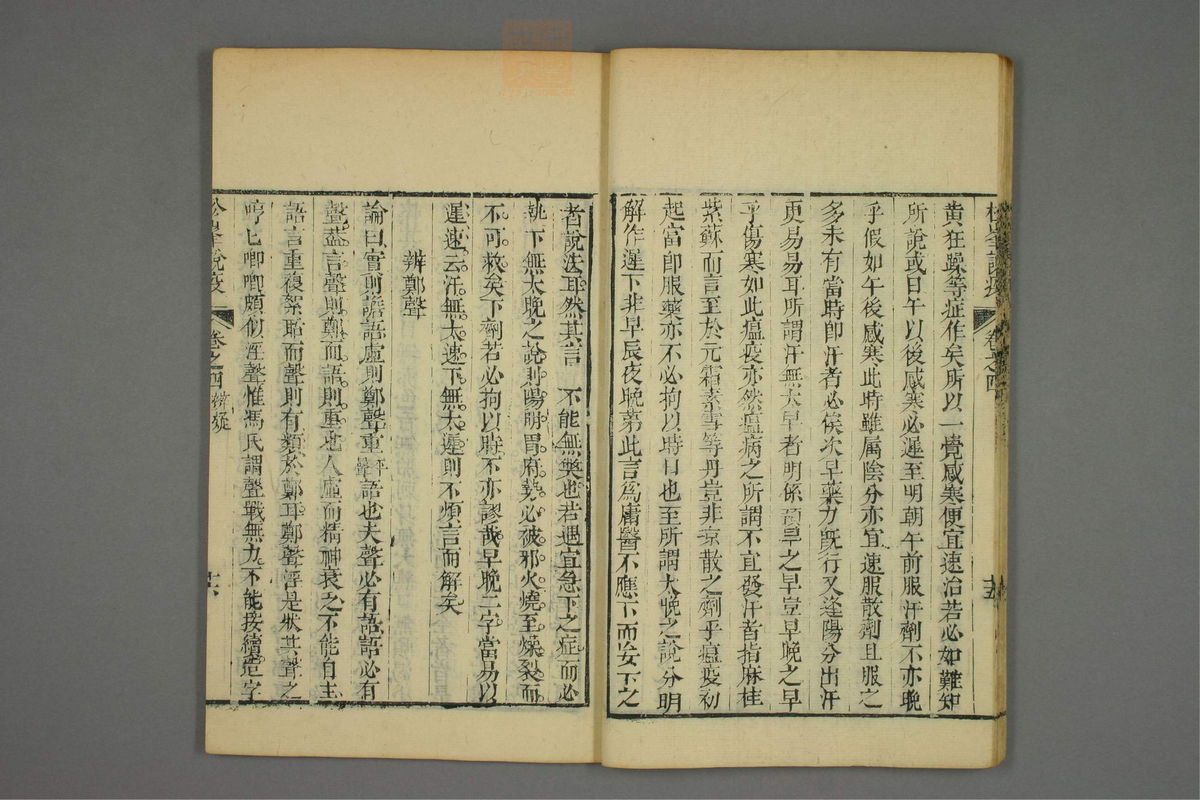 松峯說疫 卷之四 十五
黄狂躁等症作矣所以一覺感寒便宜速治若必如難知
所說或日午以後感寒必遲至明朝午前服汗劑不亦晩
乎假如午後感寒此時雖属陰分亦宜速服散劑且服之
多未有當時卽汗者必俟次早藥力旣行又逢陽分出汗
更易易耳所謂汗無太早者明係預早之早豈早晚之早
乎傷寒如此瘟疫亦然瘟病之所謂不宜發汗者指麻桂
紫蘇而言至於元霜素雪等丹豈非凉散之劑乎瘟疫初
起當卽服藥亦不必拘以時日也至所謂太晚之說分明
解作遲下非早辰夜晩第此言爲庸醫不應下而妄下之
者說法耳然其言 不能無獘也若遇宜急下之症而必
執下無太晚之說則陽明胃府勢必被邪火燒至燥裂而
不可救矣下劑若必拘以時不亦謬哉早晚二字當易以
遲速云汗無太速下無太遲則不煩言而解矣
辨鄭聲
論曰實則譫語虚則鄭聲重語也夫聲必有語語必有
聲葢言聲則鄭而語則重也人虚而精神衰乏不能自主
語言重複絮聒而聲則有類於鄭耳鄭聲淫是狀其聲之
哼匕唧唧頗似淫聲惟馮氏謂聲戰無力不能接續造字
松峯說疫 卷之四 辨疑 十六